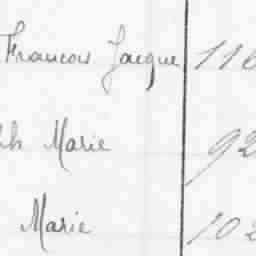 Francois Jacque 116
ph Marie 92
Marie 102